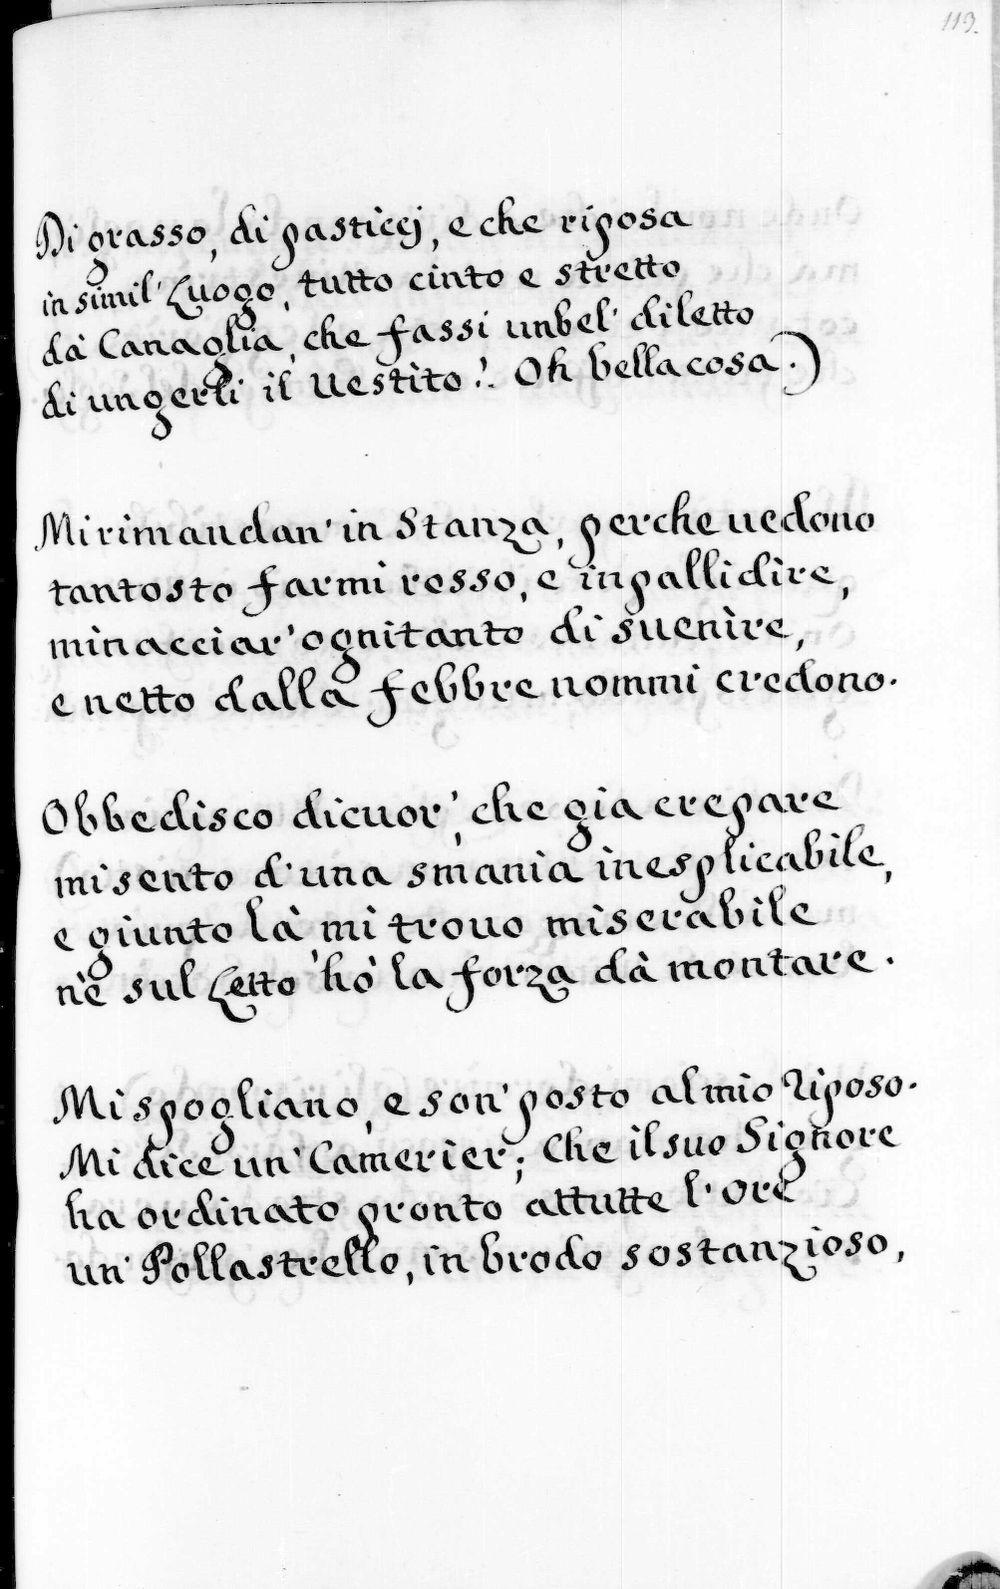 119.
Di grasso, di pasticcj, e che riposa
in simil' Luogo, tutto cinto e stretto
dà Canaglia, che fassi unbel' diletto
di ungerli il Uestito! Oh bella cosa.)
Mi rimandan' in Stanza, perche uedono
tantosto farmi rosso, e inpallidire,
minacciar' ognitanto di suenire,
e netto dalla febbre nommi credono.
Obbedisco dicuor', che gia crepare
mi sento d'una smania inesplicabile,
e giunto là mi trouo miserabile
nè sul Letto hò la forza dà montare.
Mi spogliano, e son' posto al mio Riposo.
Mi dice un' Camerier; Che il suo Signore
ha ordinato pronto attutte l'ore
un' Pollastrello, in brodo sostanzioso,